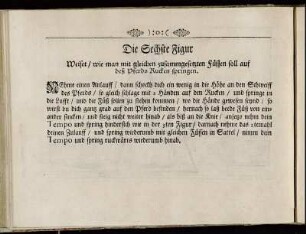 Die Sechste Figur
Weiset / wie man mit gleichen zusamengesetzten Füssen soll auf
deß Pferds Rucken springen.
Nehme einen Anlauff / dann schrecke dich ein wenig in die Höhe an den Schweiff
des Pferds / so gleich schlage mit 2 Händen auf den Rucken / und springe in
die Lufft / und die Füß sollen zu stehen kommen / wo die Hände gewesen seynd / so
wirst du dich hernach gantz grad auf dem Pferd befinden / hernach so laß beede Füß von ein-
ander sincken / und steig nicht weiter hinab / als biß an die Knie / anjetzo nehm dein
Tempo und spring hindersich wie in der 5ten Figur / darnach nehme das 2temahl
deinen Zulauff / und spring widerumb mit gleichen Füssen in Sattel / nimm dein
Tempo und spring ruckwärts widerumb hinab.